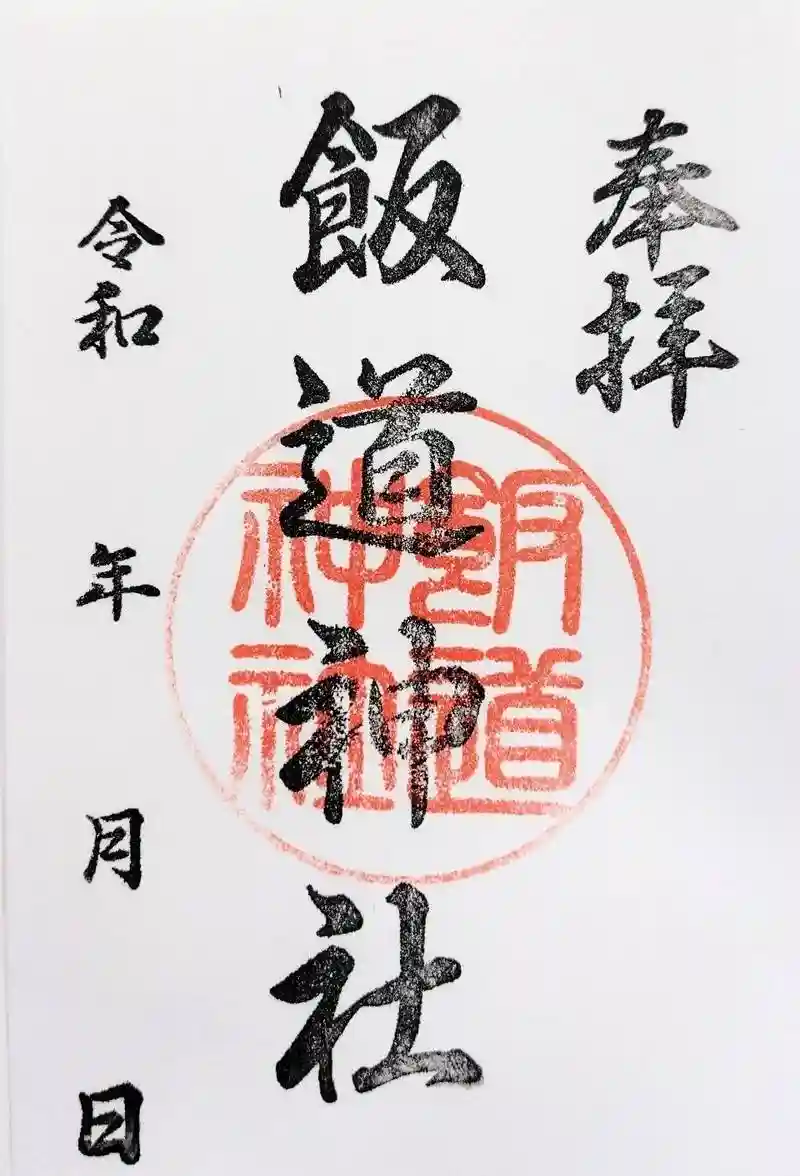 奉拝
飯道神社
飯道神社
令和 年 月 日